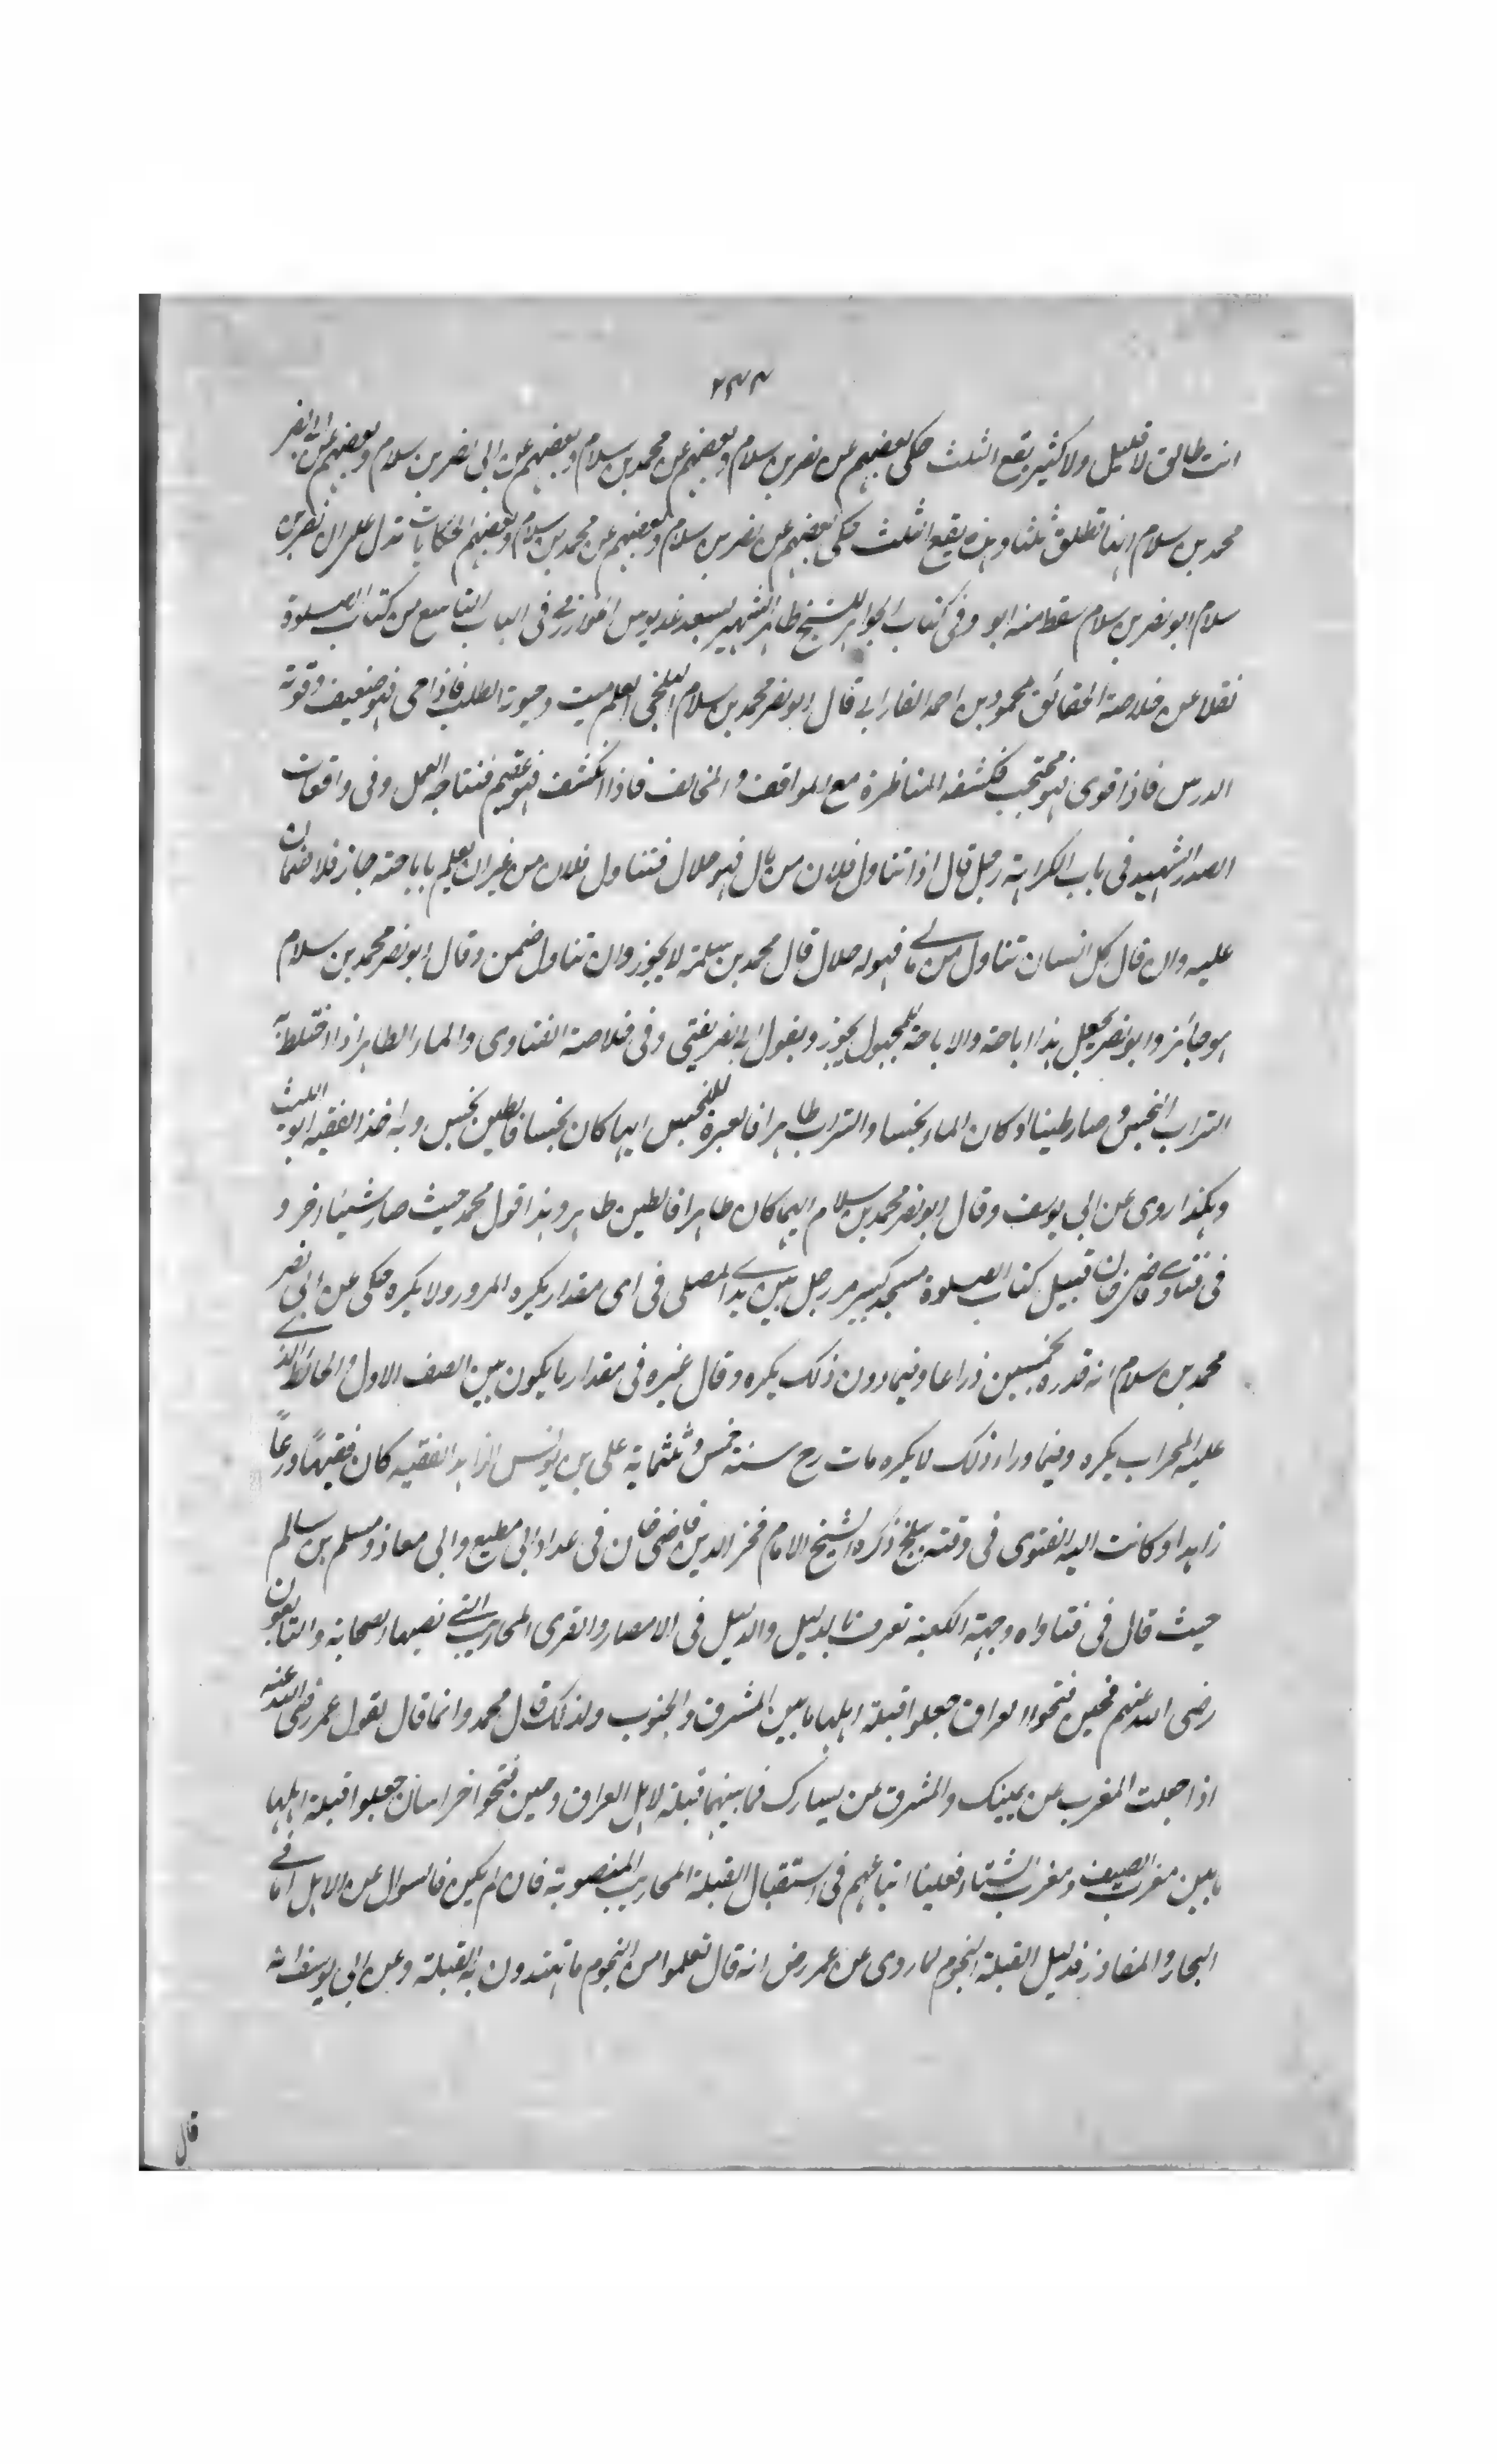 ٢٤٤
انت طالق لا قليل ولا كثير يقع الثلث حكى بعضهم عن نصر بن سلام وبعضهم عن محمد بن سلام وبعضهم عن ابى نصر بن سلام وبعضهم عن ابى نصر
محمد بن سلام انها تطلق ثلثا وهذه يقع الثلث فحكى بعضهم عن نصر بن سلام وبعضهم عن محمد بن سلام وبعضهم الحكايات تدل على ان نصر بن
سلام ابو نصر بن سلام سقط منه ابو وفى كتاب الجواهر للشيخ طاهر الشهير بسعد غديوس الخوارزمى فى الباب التاسع من كتاب الصلوة
نقلا عن خلاصة الحقائق محمود بن احمد الفارابى قال ابو نصر محمد بن سلام البلخى العلم ميت وحيوته الطلب فاذا حى فهو ضعيف وقوته
الدرس فاذا قوى فهو محتجب فكشفه المناظرة مع الموافق والمخالف فاذا انكشف فهو عقيم فنتاجه العمل وفى واقعات
الصدر الشهيد فى باب الكراهة رجل قال اذا تناول فلان من مال فهو حلال فتناول فلان من غير ان يعلم باباحته جاز فلا ضمان
عليه وان قال كل انسان تناول من مالى فهو له حلال قال محمد بن سلمة لا يجوز وان تناول ضمن وقال ابو نصر محمد بن سلام
هو جائز وابو نصر يجعل هذا اباحة والاباحة للمجهول يجوز وبقول ابى نصر يفتى وفى خلاصة الفتاوى والماء الطاهر اذا اختلط به
التراب النجس وصار طينا او كان الماء نجسا والتراب طاهرا فالعبرة للنجس ايهما كان نجسا فالطين نجس وبه اخذ الفقيه ابو الليث
وهكذا روى عن ابى يوسف وقال ابو نصر محمد بن سلام ايهما كان طاهرا فالطين طاهر وهذا قول محمد حيث صار شيئا اخر و
فى فتاوى قاضى خان قبيل كتاب الصلوة مسجد كبير مر رجل بين يدى المصلى فى اى مقدار يكره المرور ولا يكره فحكى عن ابى نصر
محمد بن سلام انه قدره بخمسين ذراعا وفيما دون ذلك يكره وقال غيره فى مقدار ما يكون بين الصف الاول والحائط الذى
عليه المحراب يكره وفيما وراء ذلك لا يكره مات رح سنة خمس وثلثماية على بن يونس الزاهد الفقيه كان فقيهاً ورعاً
زاهدا وكانت اليه الفتوى فى وقته ببلخ ذكره الشيخ الامام فخر الدين قاضى خان فى عداد ابى مطيع وابى معاذ ومسلم بن سالم
حيث قال فى فتاواه وجهة الكعبة تعرف بالدليل والدليل فى الامصار والقرى المحاريب التى نصبها الصحابة والتابعون
رضى الله عنهم فحين فتحوا العراق جعلوا قبلة اهلها ما بين المشرق والجنوب ولذلك قال محمد وانما قال بقول عمر رضى الله عنه
اذا جعلت المغرب عن يمينك والمشرق عن يسارك فما بينهما قبلة لاهل العراق وحين فتحوا خراسان جعلوا قبلة اهلها
ما بين مغرب الصيف ومغرب الشتاء فعلينا اتباعهم فى استقبال القبلة المحاريب المنصوبة فان لم يكن فالسوال عن الاهل اما فى
البحار والمفاوز فدليل القبلة النجوم لما روى عن عمر رض انه قال تعلموا من النجوم ما تهتدون به القبلة وعن ابى يوسف انه
قال